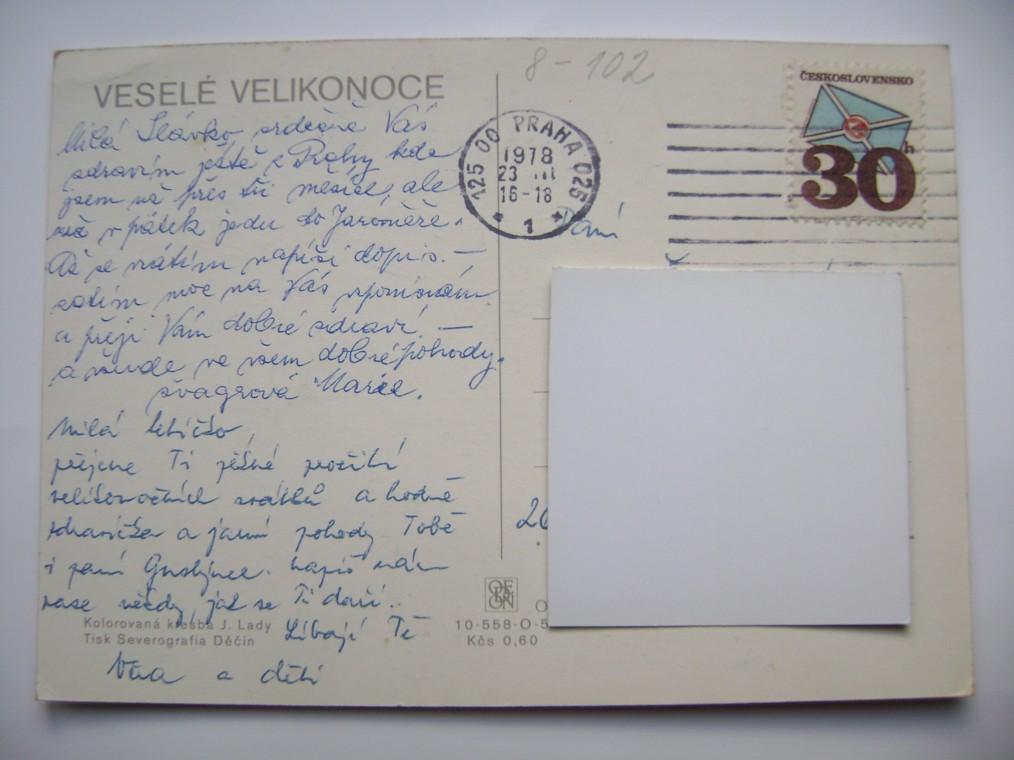 8-102
VESELÉ VELIKONOCE
ČESKOSLOVENSKO
30 h
125 00 PRAHA 025
1978
23 III
16-18
* 1 *
Milá Slávko srdečně Vás
zdravím ještě z Prahy kde
jsem už přes tři měsíce, ale
už v pátek jedu do Jaroměře.
Až se vrátím napíši dopis. —
zatím moc na Vás vzpomínám
a přeji Vám dobré zdraví. —
a všude ve všem dobré pohody.
švagrová Marie.
Milá tetičko,
přejeme Ti pěkné prožití
velikonočních svátků a hodně
zdravíčka a jarní pohody Tobě
i paní. Napiš nám
zase někdy, jak se Ti daří.
Líbají Tě
Věra a děti
Paní
26
Kolorovaná kresba J. Lady
Tisk Severografia Děčín
10-558-O-5
Kčs 0,60